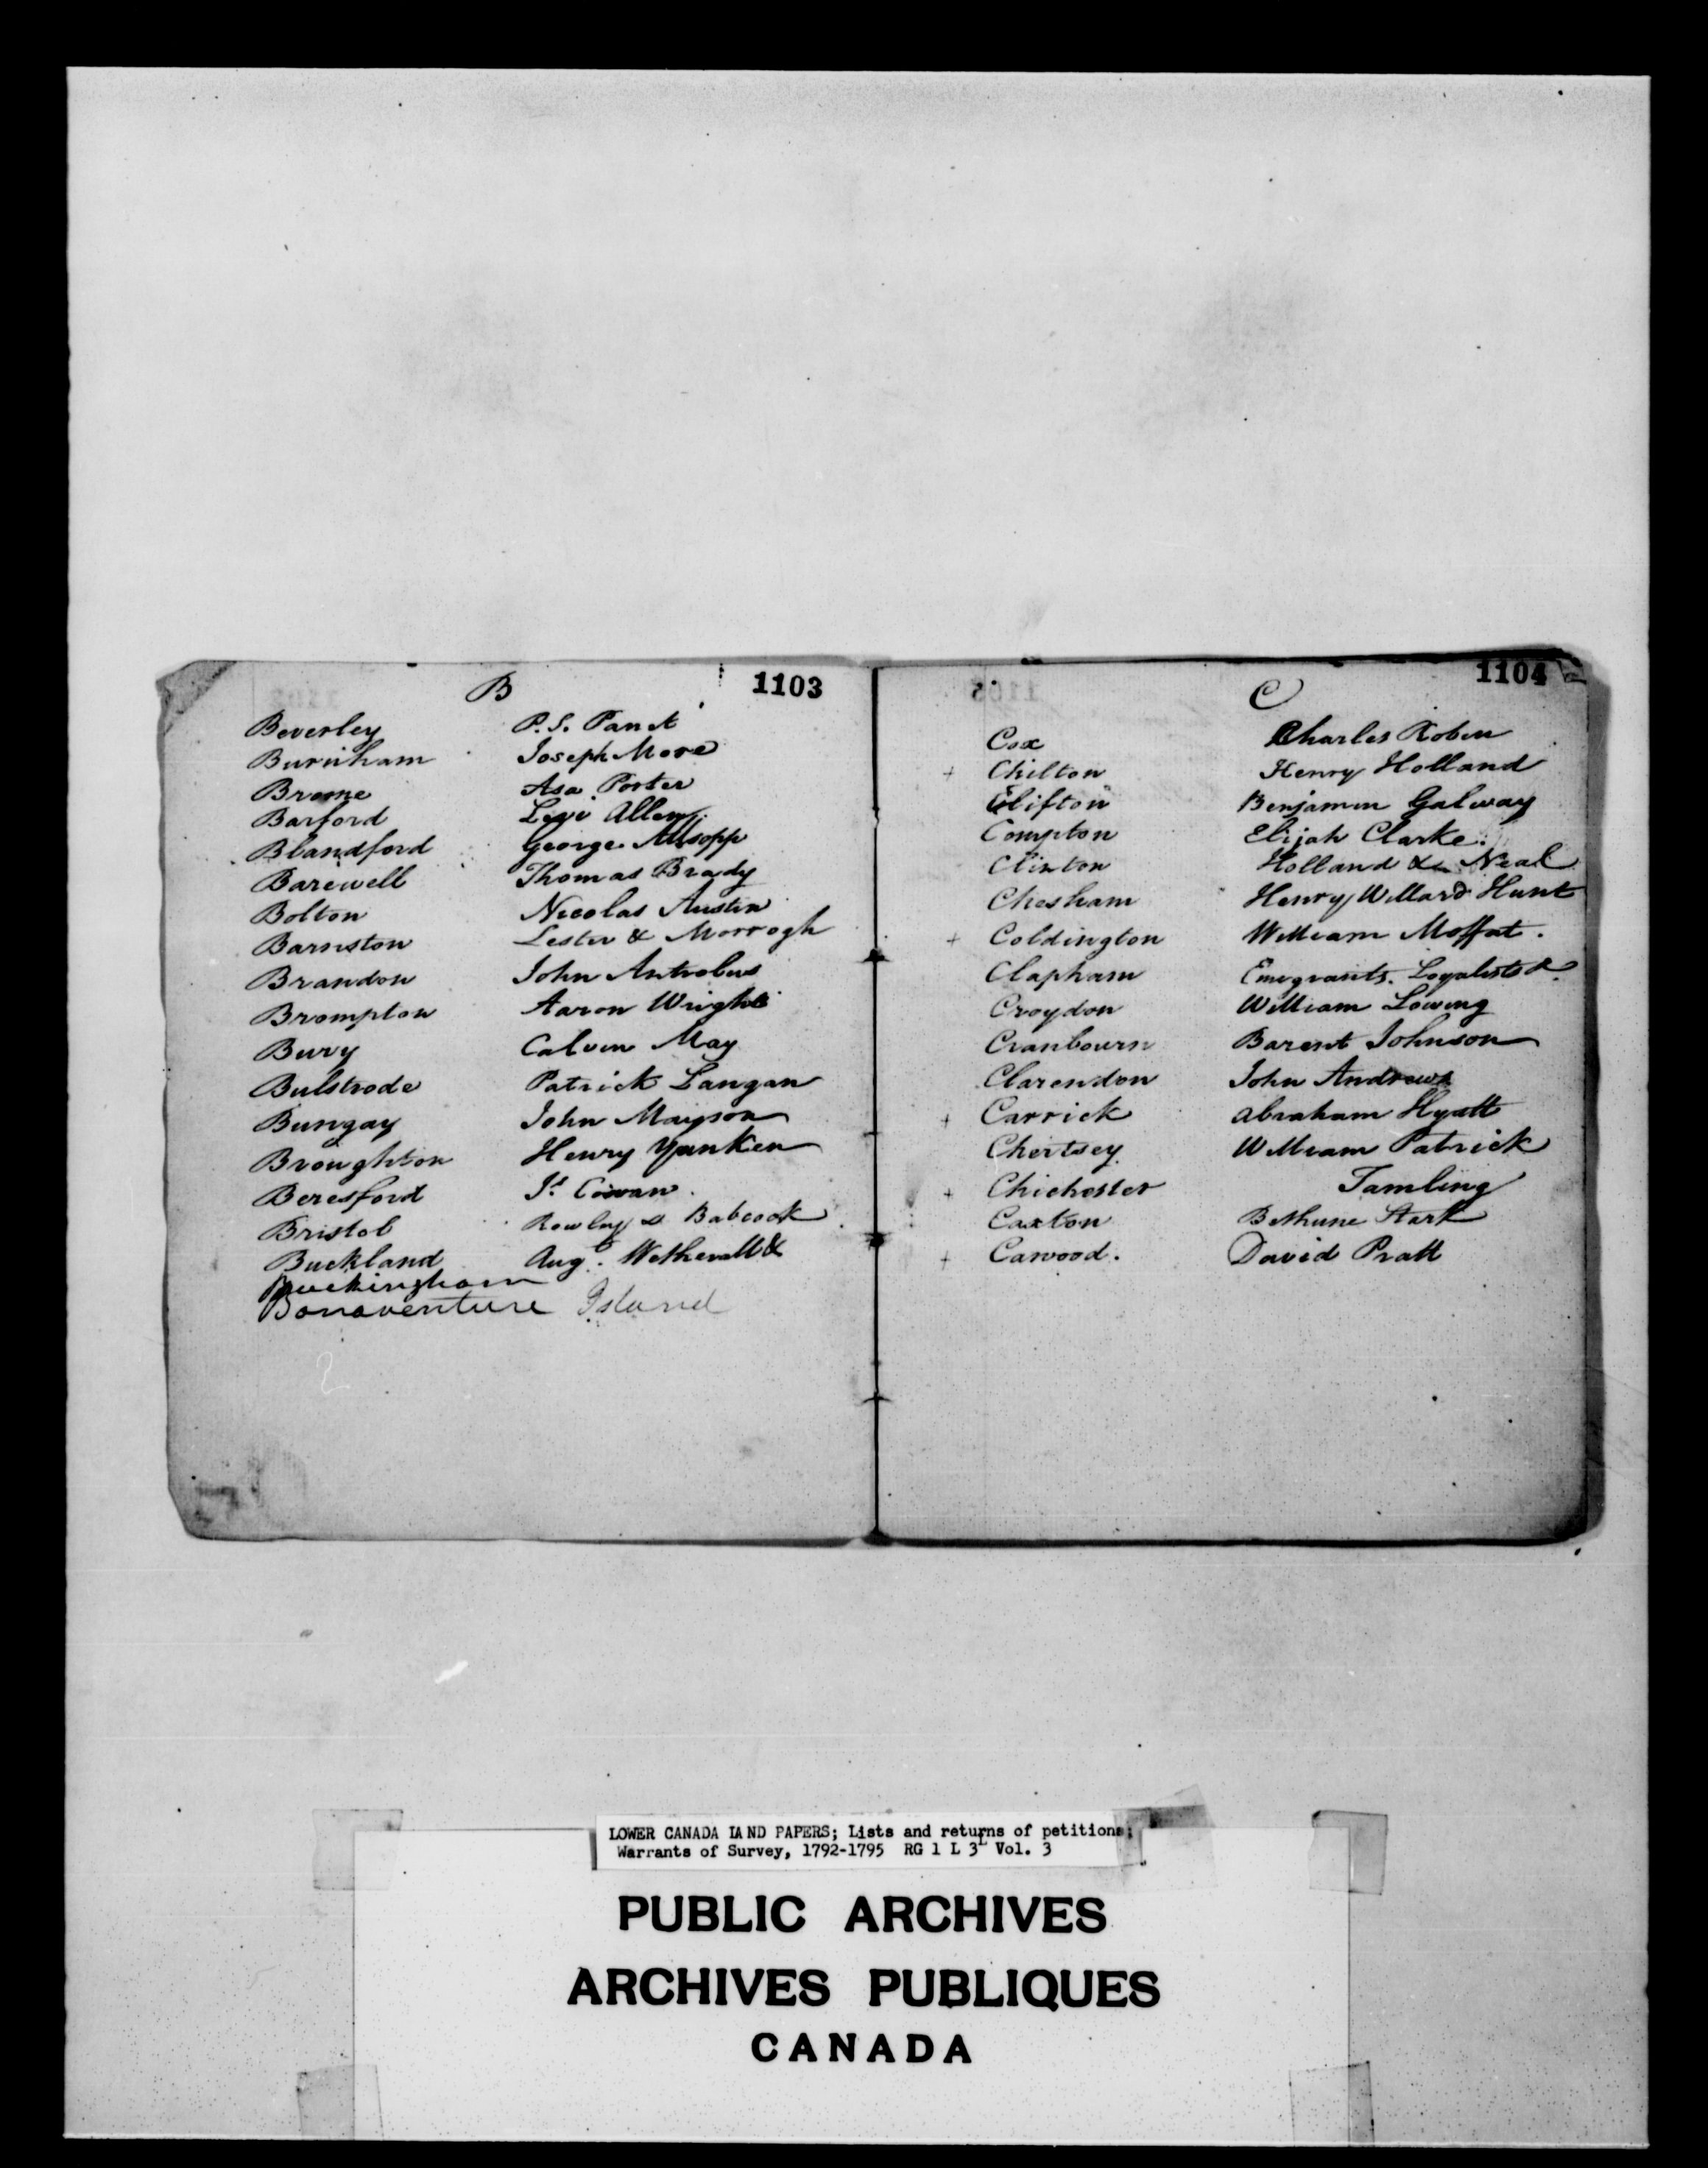 B 1103
Beverley P. S. Panet
Burnham Joseph More
Brome Asa Porter
Barford Levi Allen
Blandford George Allsopp
Barewell Thomas Brady
Bolton Nicolas Austin
Barnston Lester & Morrogh
Brandon John Antrobus
Brompton Aaron Wright
Bury Calvin May
Bulstrode Patrick Langan
Bungay John Mayson
Broughton Henry Yunken
Beresford Js. Cowan
Bristol Rowley & Babcock
Buckland Aug. Wetherall &
Buckingham
Bonaventure Island
C 1104
Cox Charles Robin
+ Chilton Henry Holland
Clifton Benjamin Galway
Compton Elijah Clarke
Clinton Holland & Neal
Chesham Henry Willard Hunt
+ Coldington William Moffat.
Clapham Emigrants. Loyalists &
Croydon William Lowing
Cranbourn Barent Johnson
Clarendon John Andrews
+ Carrick Abraham Hyatt
Chertsey William Patrick
+ Chichester Tamling
Caxton Bethune Stark
+ Carwood. David Pratt
LOWER CANADA LAND PAPERS; Lists and returns of petitions;
Warrants of Survey, 1792-1795 RG 1 L 3L Vol. 3
PUBLIC ARCHIVES
ARCHIVES PUBLIQUES
CANADA